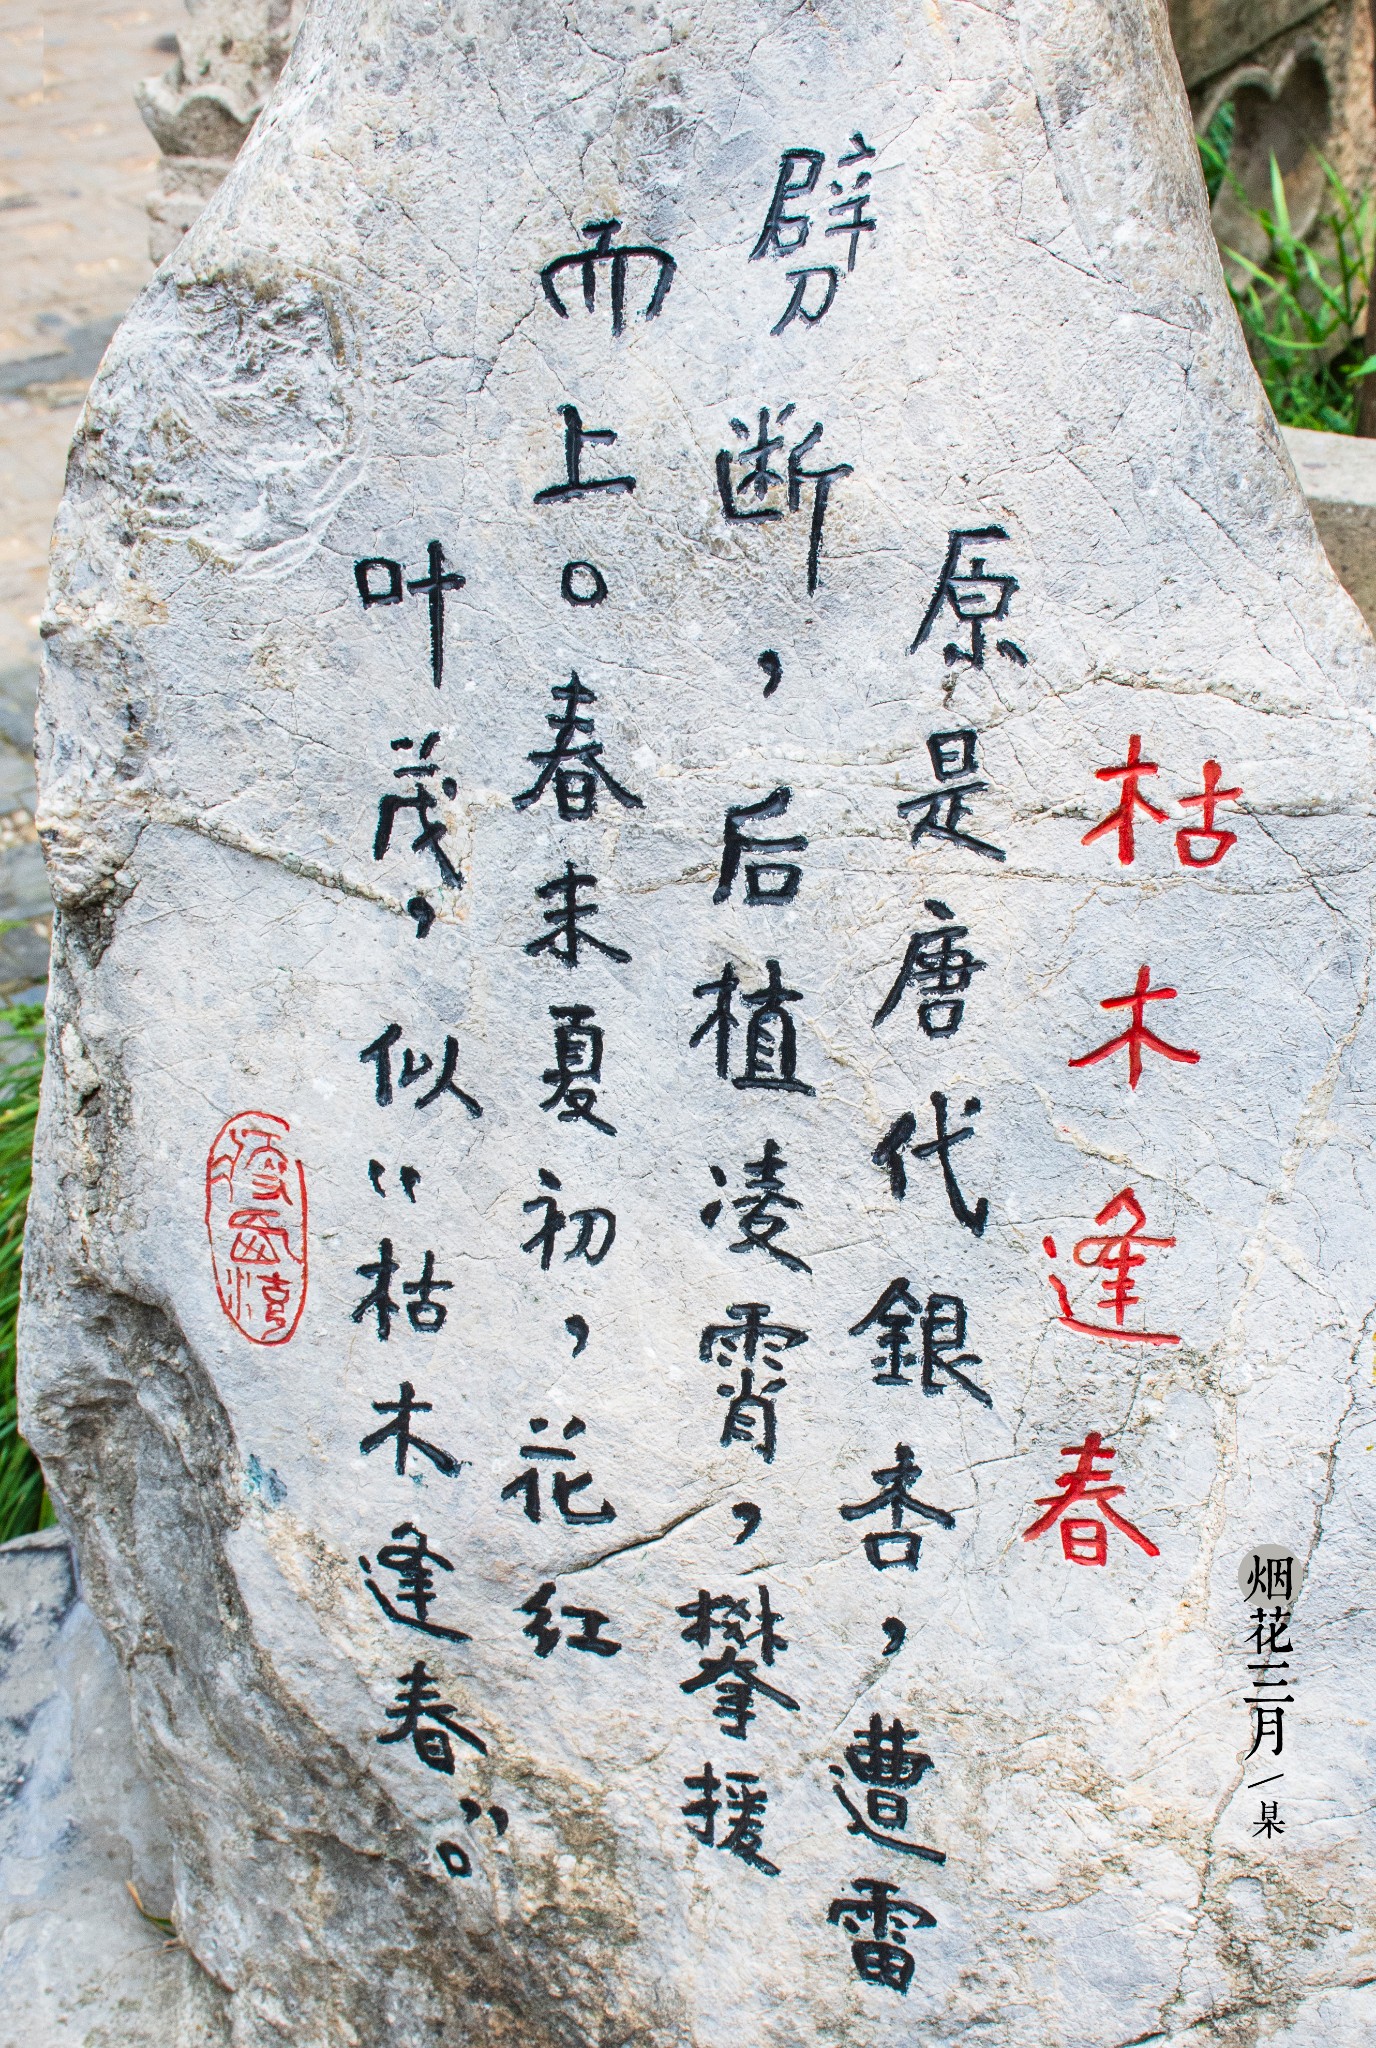 枯木逢春
原是唐代銀杏，遭雷
劈断，后植凌霄，攀援
而上。春末夏初，花红
叶茂，似“枯木逢春”。
烟花三月/某